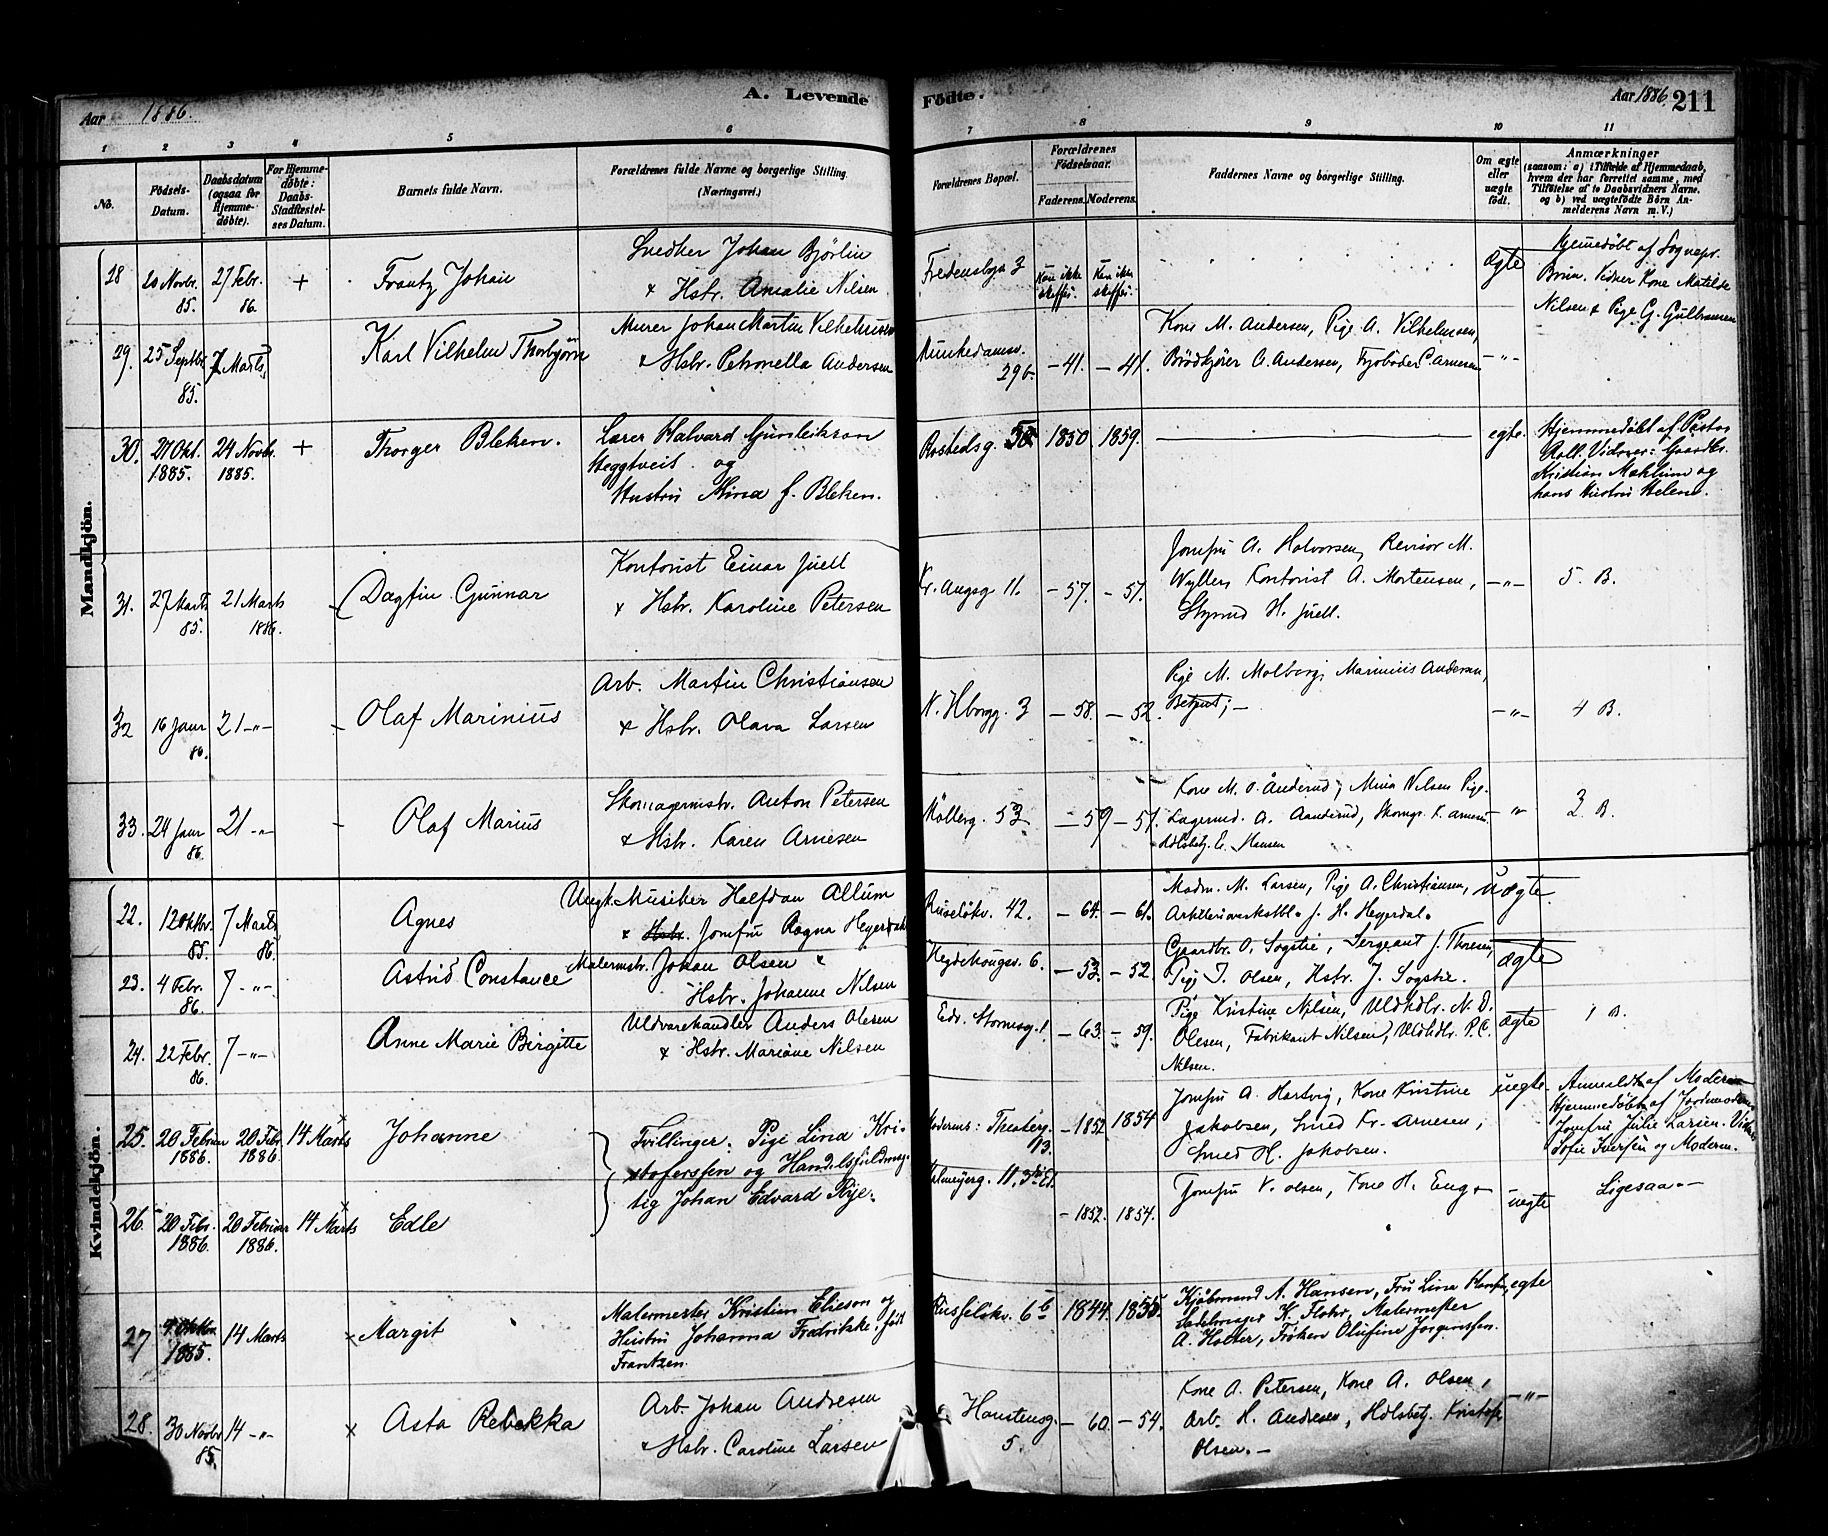 Aar 1886.
A. Levende
Fødte.
Aar 1886
211
1 2 3 4 5 6 7 8 9 10 11
No.
Födsels-Datum.
Daabsdatum (ogsaa for Hjemme-döbte).
For Hjemme-döbte: Daabs-Stadfæstel-ses Datum.
Barnets fulde Navn.
Forældrenes fulde Navne og borgerlige Stilling. (Næringsvei.)
Forældrenes Bopæl.
Forældrenes Födselsaar.
Faderens. Moderens.
Faddernes Navne og borgerlige Stilling.
Om ægte eller uægte födt.
Anmærkninger
(saasom: a) i Tilfælde af Hjemmedaab, hvem der har forrettet samme, med Tilföielse af to Daabsvidners Navne. og b) ved uægtefödte Börn An-melderens Navn m. V.)
Mandkjön.
28 20 Novbr. 85. 27 Febr. 86. + Frantz Johan
Snedker Johan Bjørlin
& Hstr. Amalie Nilsen
Fredensborg 3
Kan ikke skaffes. Kan ikke skaffes.
ægte
Hjemmedøbt af Sognepr.
Brun. Vidner Kone Matilde
Nilsen & Pige G. Gulbransen
29. 25 Septbr. 85. 7 Marts Karl Vilhelm Thorbjørn
Murer Johan Martin Vilhelmsen
& Hstr. Petronella Andersen
Munkedamsv. 29 b.
- 41. - 41.
Kone M. Andersen, Pige A. Vilhelmsen,
Brødkjører A. Andersen, C. Arnesen
- " -
30. 27 Okt. 1885. 24 Novbr. 1885. + Thorger Bleken.
Lærer Halvard Gunleikson
Heggtveit og
Hustru Mina f. Bleken.
Rostedsg.
1850 1859.
egte.
Hjemmedøbt af Pastor
Vidner: Gaardbr.
Kristian Mæhlum og
hans Hustru Helene.
31. 27 Marts 85. 21 Marts 1886. Dagfin Gunnar
Kontorist Einar Juell
& Hstr. Karoline Petersen
Kr. Augsg 11.
- 57. - 57.
Jomfru A. Halvorsen, Revisor M.
Wyller, Kontorist A. Mortensen,
Styrmd H. Juell.
- " -
5. B.
32 16 Janr 86. 21 - " - Olaf Marinius
Arb. Martin Christiansen
& Hstr. Olava Larsen
N. Hborgg. 3
- 58. - 52.
Pige M. Malberg, Marinius Andersen,
Betjent; -
- " -
4 B.
33. 24 Janr 86. 21 - " - Olaf Marius
Skomagermstr. Anton Petersen
& Hstr. Karen Arnesen
Møllerg. 53
- 59 - 57.
Kone M. O. Aanderud, Mina Nilsen Pige.
Lagermd. A. Aanderud, Skomgr. K. Arnesen
E. Hansen
- " -
2. B.
Kvindekjön.
22. 12 Oktbr. 85. 7 Marts 86. Agnes
Ungk. Musiker Halfdan Allum
& Hstr. Jomfru Ragna Heyerdahl
Ruseløkv. 42.
- 64. - 61.
Madm. M. Larsen, Pige A. Christiansen,
J. H. Heyerdal.
uægte.
23. 4 Febr. 86. 7 - " - Astrid Constance
Malermstr. Johan Olsen &
Hstr. Johanne Nilsen
Hegdehaugsv. 6.
- 53. - 52.
Gaardbr. O. Sogstie, Sergeant J. Thoresen,
Pige T. Olsen, Hstr. J. Sogstie.
ægte
24. 22 Febr. 86. 7 - " - Anne Marie Birgitte
Uldvarehandler Anders Olesen
& Hstr. Mariane Nilsen
Edv. Stormsg. 1.
- 63. - 59.
Pige Kristine Nilsen, Uldhdlr. N. O.
Olesen, Fabrikant Nilsen, Uldhdlr. P. C.
Nilsen.
ægte
1 B.
25. 20 Februar 1886. 20 Febr. 1886. 14 Marts Johanne
Tvillinger. Pige Lina Kri-
stoferssen og Handelsfuldmæg-
tig Johan Edvard Rye.
Moderens: Thereseg. 13.
- 1852. 1854
Jomfru A. Hartvig, Kone Kristine
Jakobsen, Smed Kr. Arnesen,
Smed H. Jakobsen.
uegte.
Anmeldt af Moderen
Hjemmedøbt af Jordmoderen
Jomfru Julie Larsen. Vidner
Sofie Iversen og Moderen.
26. 20 Febr. 1886. 20 Februar 1886. 14 Marts Edle
Calmeyerg. 11. 3die Et.
- 1852. 1854.
Jomfru V. Olsen, Kone H. Eng
uegte
Ligesaa -
27 1885. 14 Marts × Margit
Malermester Kristian Elieson og
Hustru Johanna Fredrikke, født
Frantzen.
Russeløkv. 6 b
1844. 1855
Kjøbmand A. Hansen, Fru Lina Hansen,
K. Flohr, Malermester
A. Holter, Frøken Olufine Jørgenssen.
egte
28. 30 Novbr 85. 14 - " - × Asta Rebekka
Arb. Johan Andresen
& Hstr. Caroline Larsen
Hanstensg. 5.
- 60. - 54.
Kone A. Petersen, Kone A. Olsen,
Arb. H. Andresen, Kristofer
Olsen. -
- " -